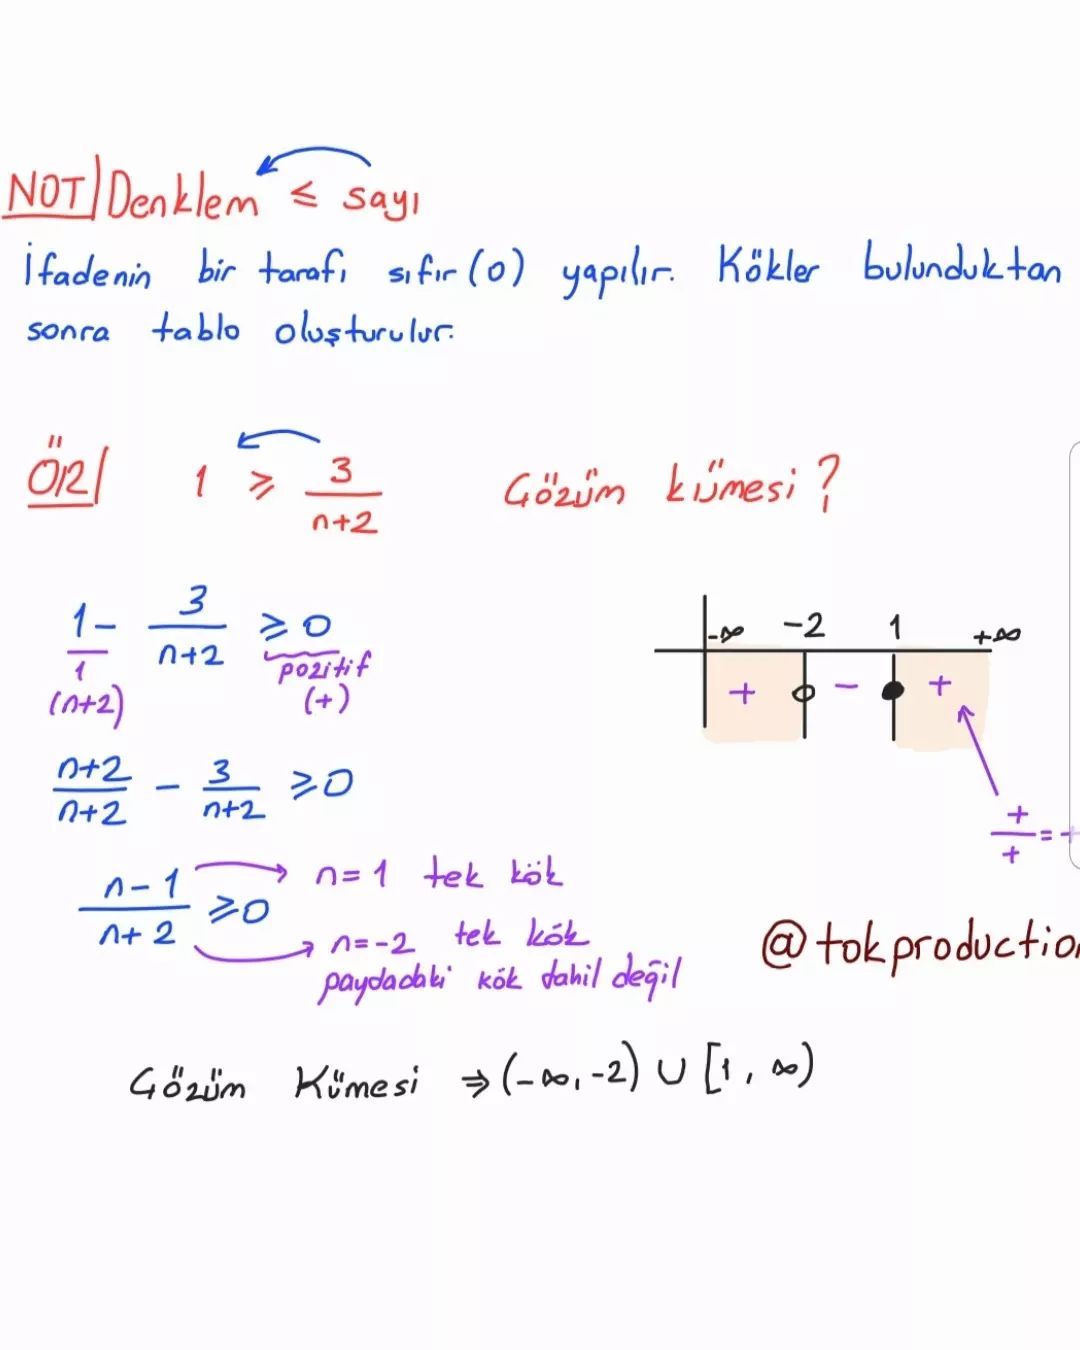 NOT/ Denklem ≤ sayı
İfadenin bir tarafı sıfır (0) yapılır. Kökler bulunduktan
sonra tablo oluşturulur.
ÖR/ 1 ≥ 3/(n+2) Çözüm kümesi ?
1 - 3/(n+2) ≥ 0
1 pozitif
(n+2) (+)
-∞ -2 1 +∞
+ - +
(n+2)/(n+2) - 3/(n+2) ≥ 0
+/+ = +
(n-1)/(n+2) ≥ 0
n=1 tek kök
n=-2 tek kök
paydadaki kök dahil değil
@tokproduction
Çözüm Kümesi ⇒ (-∞, -2) ∪ [1, ∞)